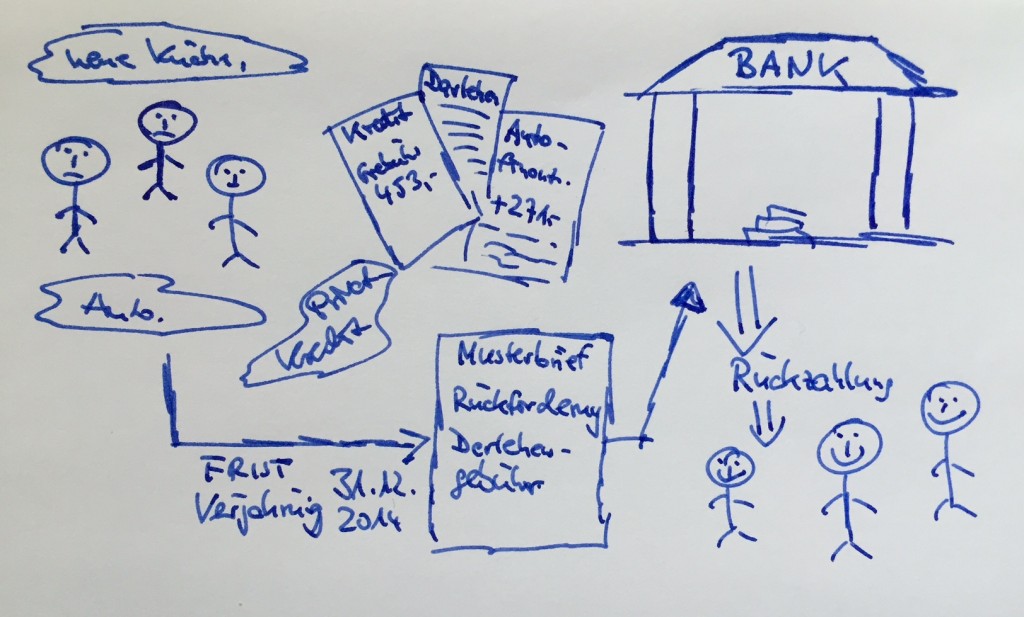 neue Küche,
Auto.
Kredit
Gebühr
453,-
Darlehen
Auto-
+271,-
Privat
Kredit
BANK
FRIST
Verjährung
31.12.
2014
Musterbrief
Rückforderung
Darlehen-
gebühr
Rückzahlung